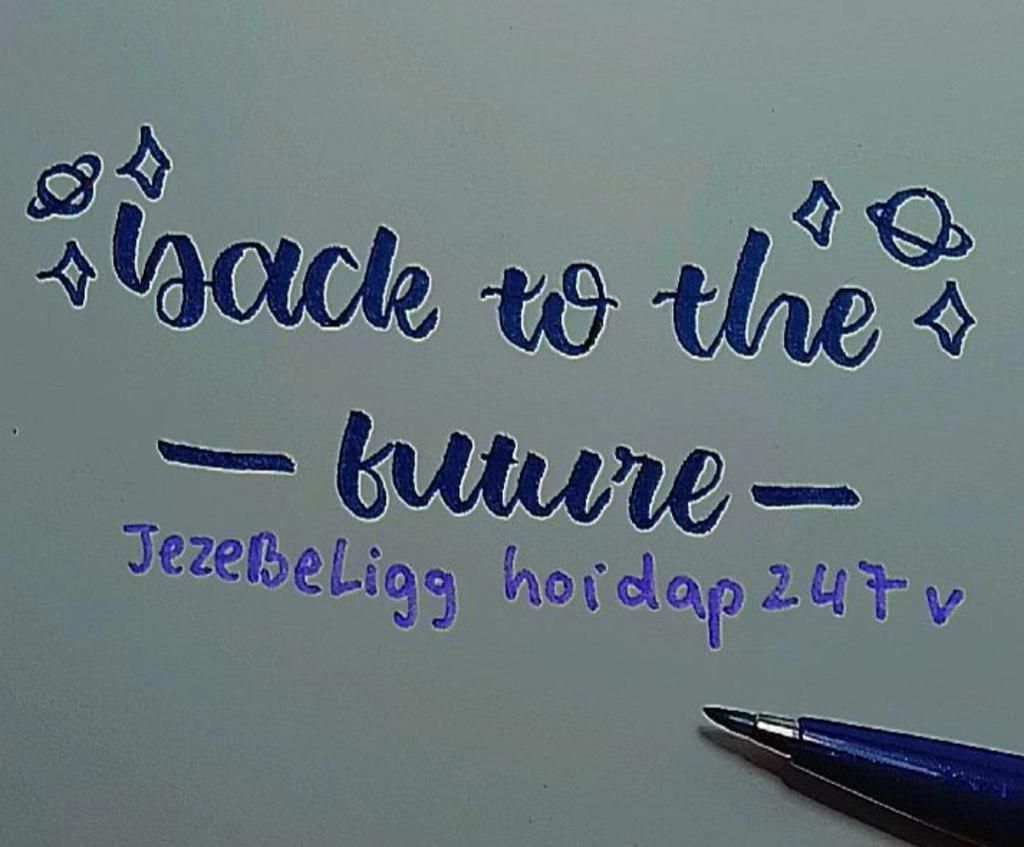 back to the
— future —
JezeBeLigg hoidap247v